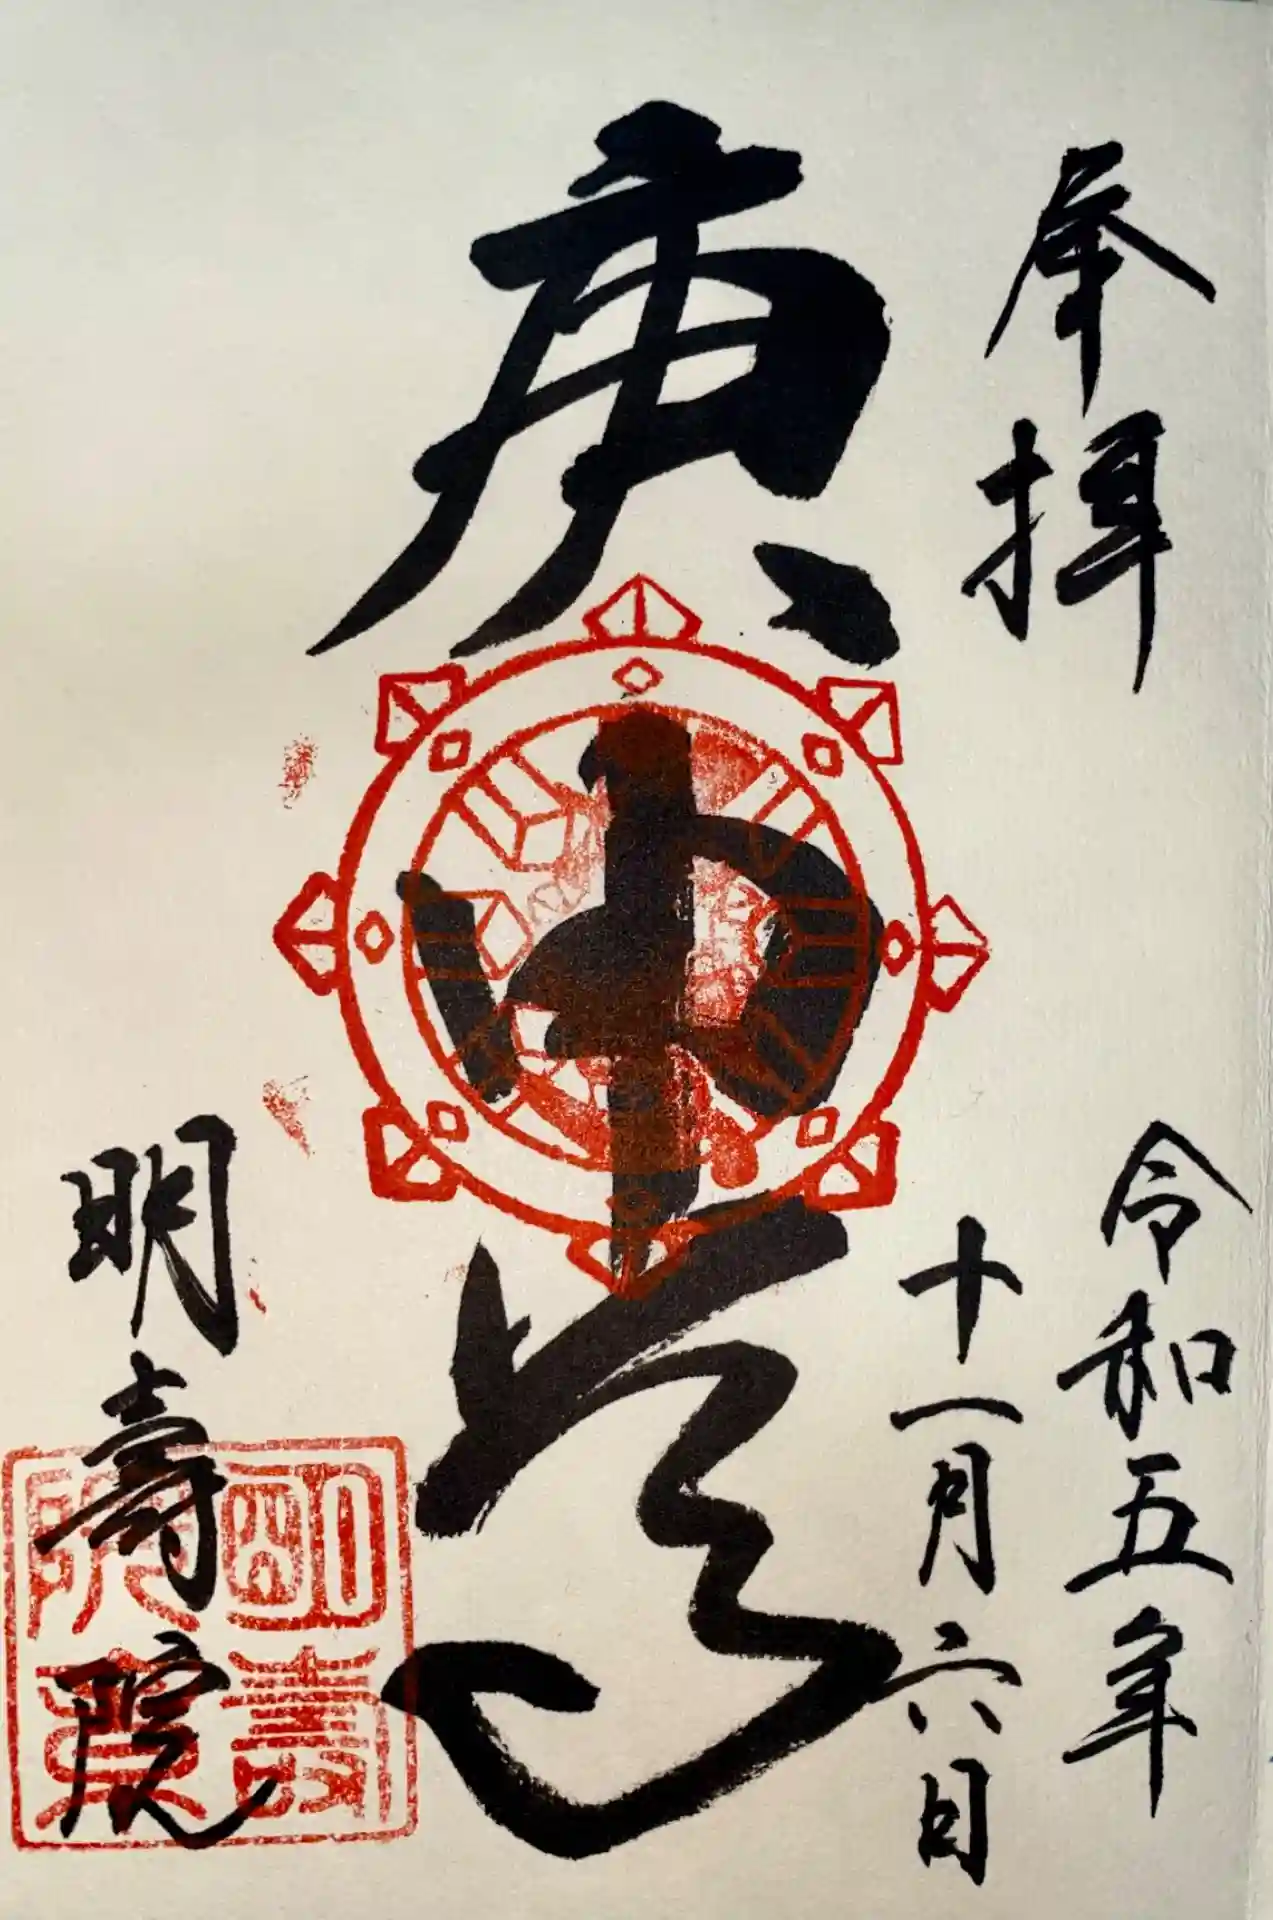 奉拝
令和五年
十一月六日
庚申
明壽院
明壽
院